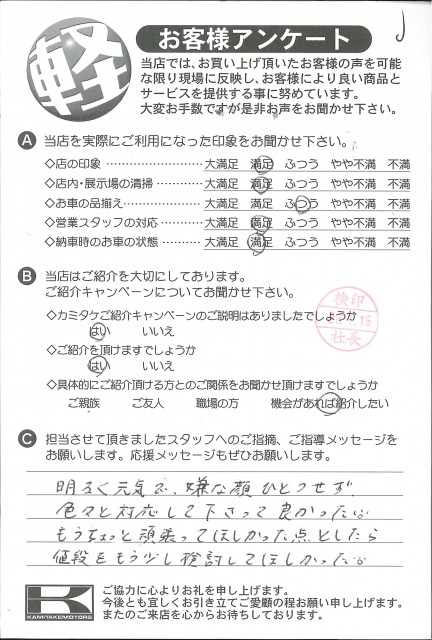 軽
お客様アンケート
当店では、お買い上げ頂いたお客様の声を可能
な限り現場に反映し、お客様により良い商品と
サービスを提供する事に努めています。
大変お手数ですが是非お声をお聞かせ下さい。
A 当店を実際にご利用になった印象をお聞かせ下さい。
◇店の印象 ………………… 大満足 満足 ふつう やや不満 不満
◇店内・展示場の清掃 ………… 大満足 満足 ふつう やや不満 不満
◇お車の品揃え ……………… 大満足 満足 ふつう やや不満 不満
◇営業スタッフの対応 ………… 大満足 満足 ふつう やや不満 不満
◇納車時のお車の状態 ………… 大満足 満足 ふつう やや不満 不満
B 当店はご紹介を大切にしております。
ご紹介キャンペーンについてお聞かせ下さい。
◇カミタケご紹介キャンペーンのご説明はありましたでしょうか
はい いいえ
◇ご紹介を頂けますでしょうか
はい いいえ
◇具体的にご紹介頂ける方とのご関係をお聞かせ頂けますでしょうか
ご親族 ご友人 職場の方 機会があれば紹介したい
検印
社長
C 担当させて頂きましたスタッフへのご指摘、ご指導メッセージを
お願いします。応援メッセージもぜひお願いします。
明るく元気で、嫌な顔ひとつせず
色々と対応して下さって良かった。
もうちょっと頑張ってほしかった点としたら
値段をもう少し検討してほしかった。
K
KAMITAKEMOTORS
ご協力に心よりお礼を申し上げます。
今後とも宜しくお引き立てご愛顧の程お願い申し上げます。
またのご来店を心からお待ちしております。